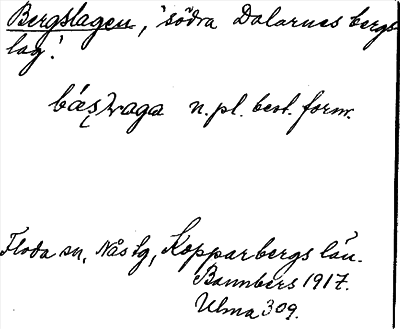 Bergslagen, 'södra Dalarnes bergs-
lag'.
n. pl. best. form.
Floda sn, Nås tg, Kopparbergs län.
Bannbers 1917.
Ulma 309.